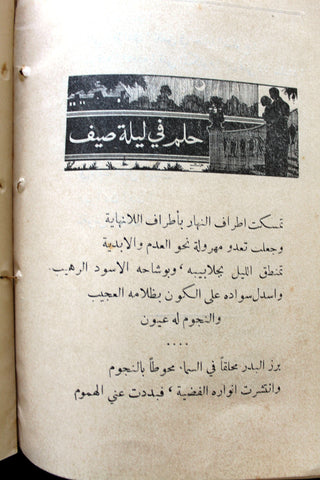 حلم في ليلة صيف
تمسكت اطراف النهار بأطراف اللانهاية
وجعلت تعدو مهرولة نحو العدم والابدية
تمنطق الليل بجلابيبه ، وبوشاحه الاسود الرهيب.
واسدل سواده على الكون بظلامه العجيب
والنجوم له عيون
. . . .
برز البدر محلقاً في السماء محوطاً بالنجوم
وانتشرت انواره الفضية ، فبددت عني الهموم